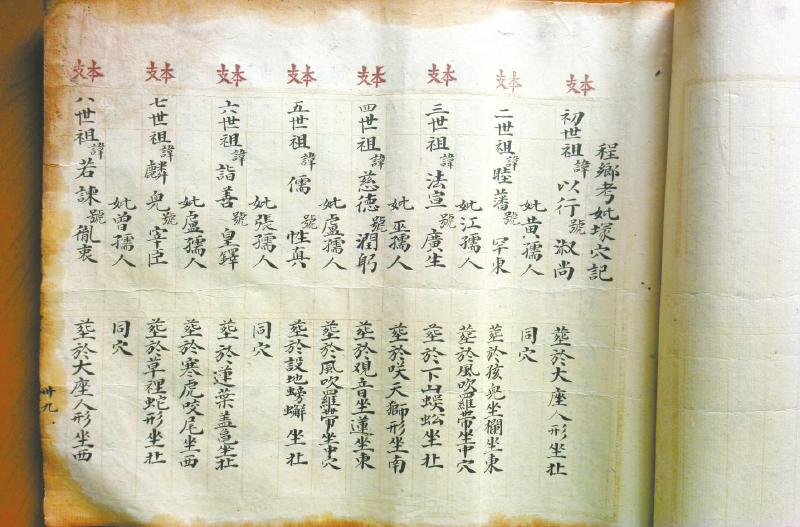 程鄉考妣塚穴記
本支
初世祖諱以行號淑尚 塟於大座人形坐北
妣黄孺人 同穴
本支
二世祖諱睦藩號罕東 塟於孩兒坐欄坐東
妣江孺人 塟於風吹羅帶坐中穴
本支
三世祖諱法宣號廣生 塟於下山蜈蚣坐北
妣巫孺人 塟於咲天獅形坐南
本支
四世祖諱慈德號潤躬 塟於覌音坐蓮坐東
妣盧孺人 塟於風吹羅帶坐中穴
本支
五世祖諱儒號性真 塟於設地螃蠏坐北
妣張孺人 同穴
本支
六世祖諱詣善號皇鐸 塟於蓮葉盖龟坐北
妣盧孺人 塟於寒虎咬尾坐西
本支
七世祖諱麟兒號宰臣 塟於草裡蛇形坐北
妣曾孺人 同穴
本支
八世祖諱若諫號胤衷 塟於大座人形坐西
卅九